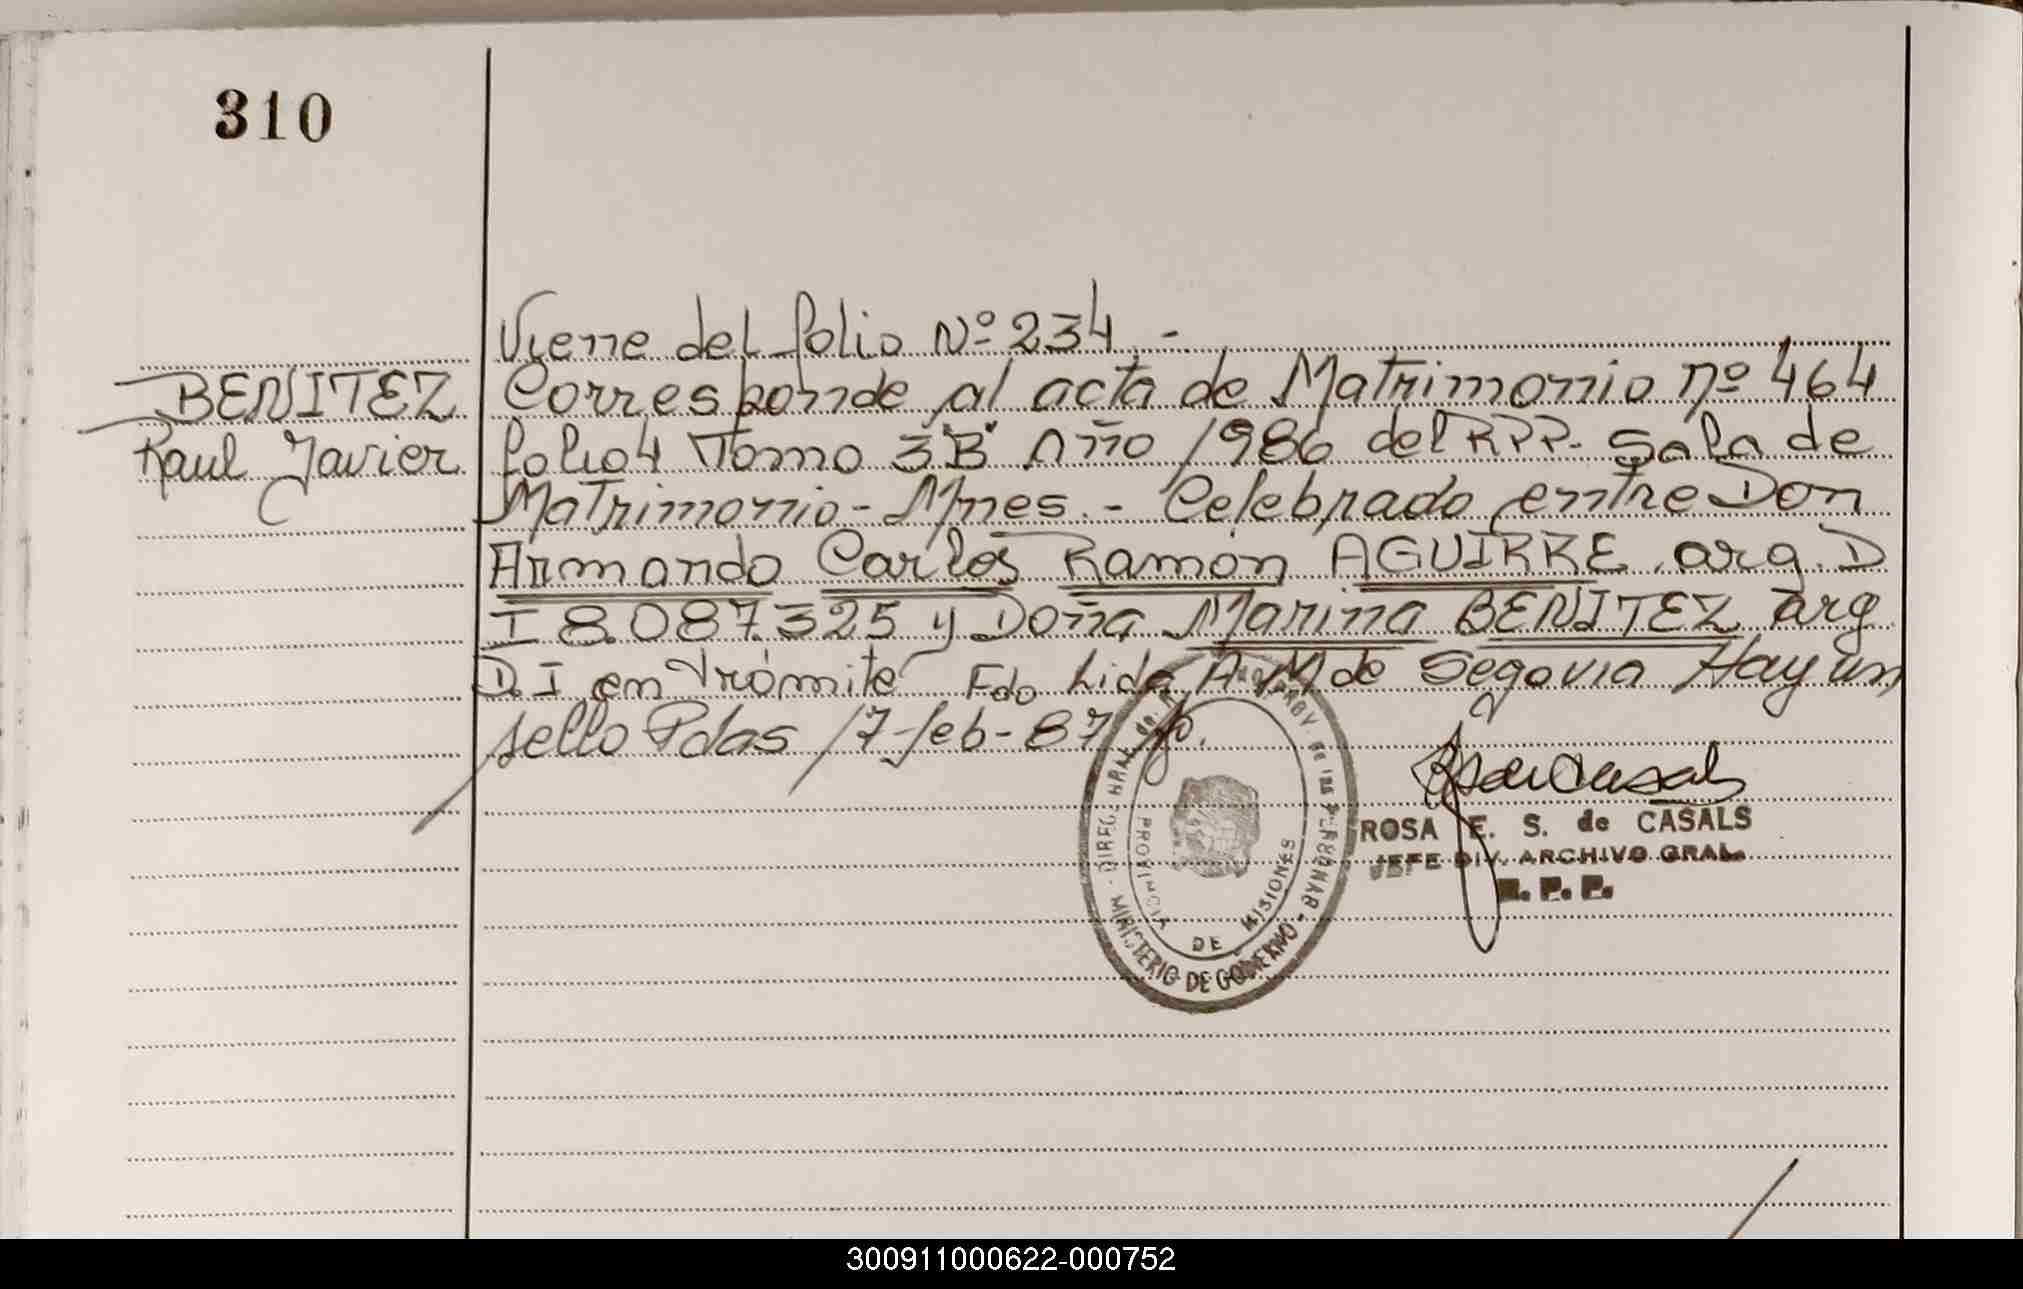 310
Viene del folio Nº 234 -
BENITEZ
Raul Javier
Corresponde al acta de Matrimonio nº 464
folio 4 Tomo 3"B" Año 1986 del R.P.P. Sala de
Matrimonio - Mnes. - Celebrado entre Don
Armando Carlos Ramón AGUIRRE. arg. D
I 8.087.325 y Doña Marina BENITEZ arg
D.I en trámite Fdo Lida A M de Segovia Hay un
sello Pdas 17-feb-87
ROSA E. S. de CASALS
JEFE DIV. ARCHIVO GRAL.
R. P. P.
PROVINCIA DE MISIONES
MINISTERIO DE GOBIERNO
300911000622-000752